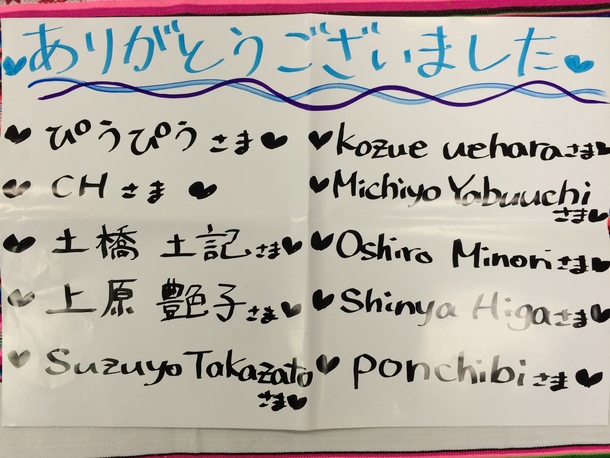 ♥ありがとうございました♥
♥ぴうぴうさま♥
♥CHさま♥
♥土橋 土記さま♥
♥上原 艶子さま♥
♥Suzuyo Takazatoさま♥
♥Kozue ueharaさま♥
♥Michiyo Yabuuchiさま♥
♥Oshiro Minoriさま♥
♥Shinya Higaさま♥
♥ponchibiさま♥